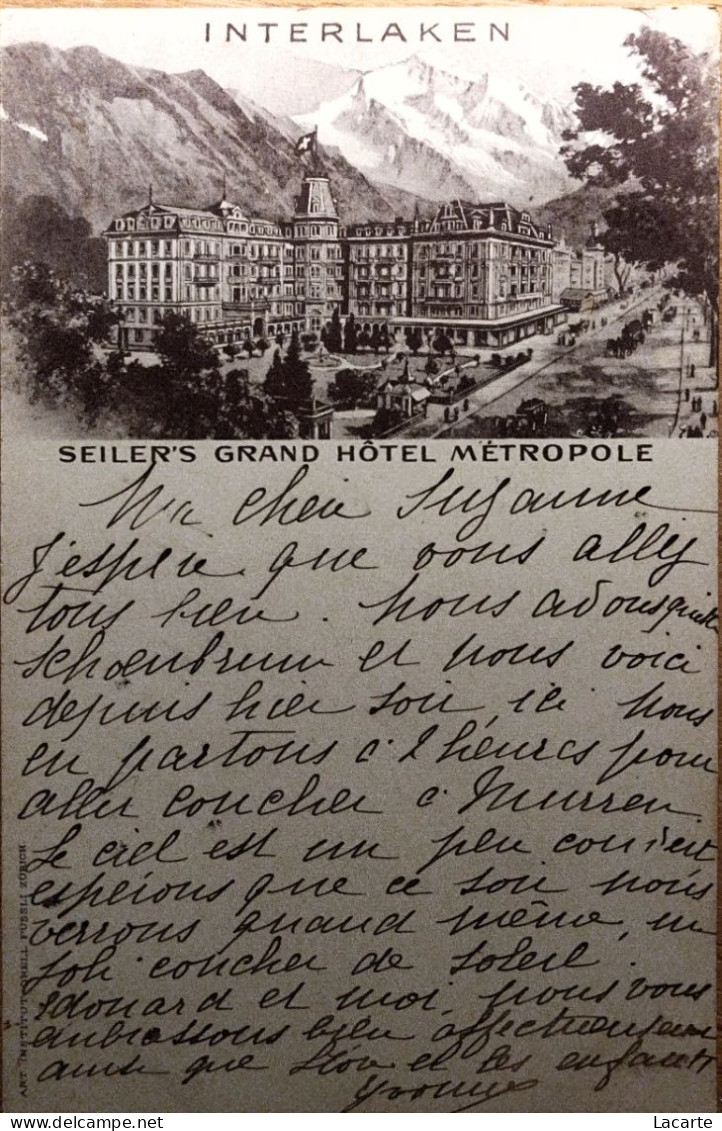 INTERLAKEN
SEILER'S GRAND HÔTEL MÉTROPOLE
Ma chère Suzanne
J'espère que vous allez
tous bien. Nous avons quitté
Schoenbrunn et nous voici
depuis hier soir ici. Nous
en partons à 2 heures pour
aller coucher à Murren.
Le ciel est un peu couvert
espérons que ce soir nous
verrons quand même un
joli coucher de soleil.
Edouard et moi, nous vous
embrassons bien affectueusement
ainsi que Léon et les enfants
Yvonne
ART. INSTITUT ORELL FÜSSLI ZÜRICH
Lacarte